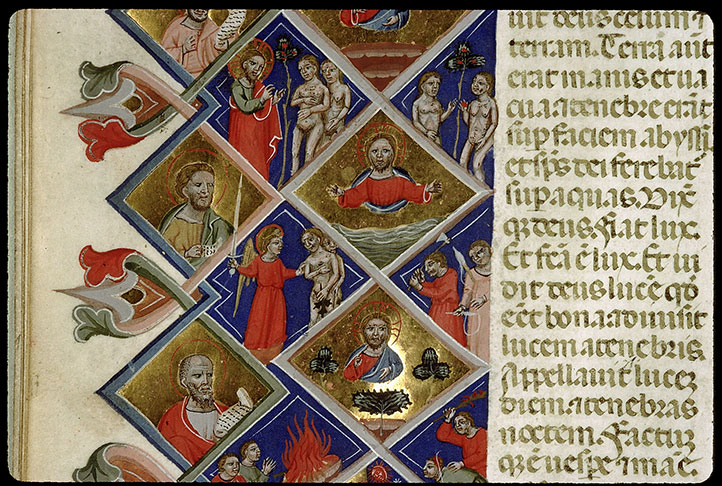 uit deus celum ⁊
terram. Terra aut̄
erat inanis et ua
cua ⁊ tenebre erāt
sup faciem abyssi
et sp̄s dei ferebat᷑
sup aquas. Dix̄
q̄ deus. Fiat lux.
Et fcā ē lux. Et ui
dit deus lucē q̄o
eēt bona ⁊ diuisit
lucem a tenebris
Appellauit lucez
diem ⁊ tenebras
noctem. Factuz
q̄ ē uesp̄e ⁊ mane